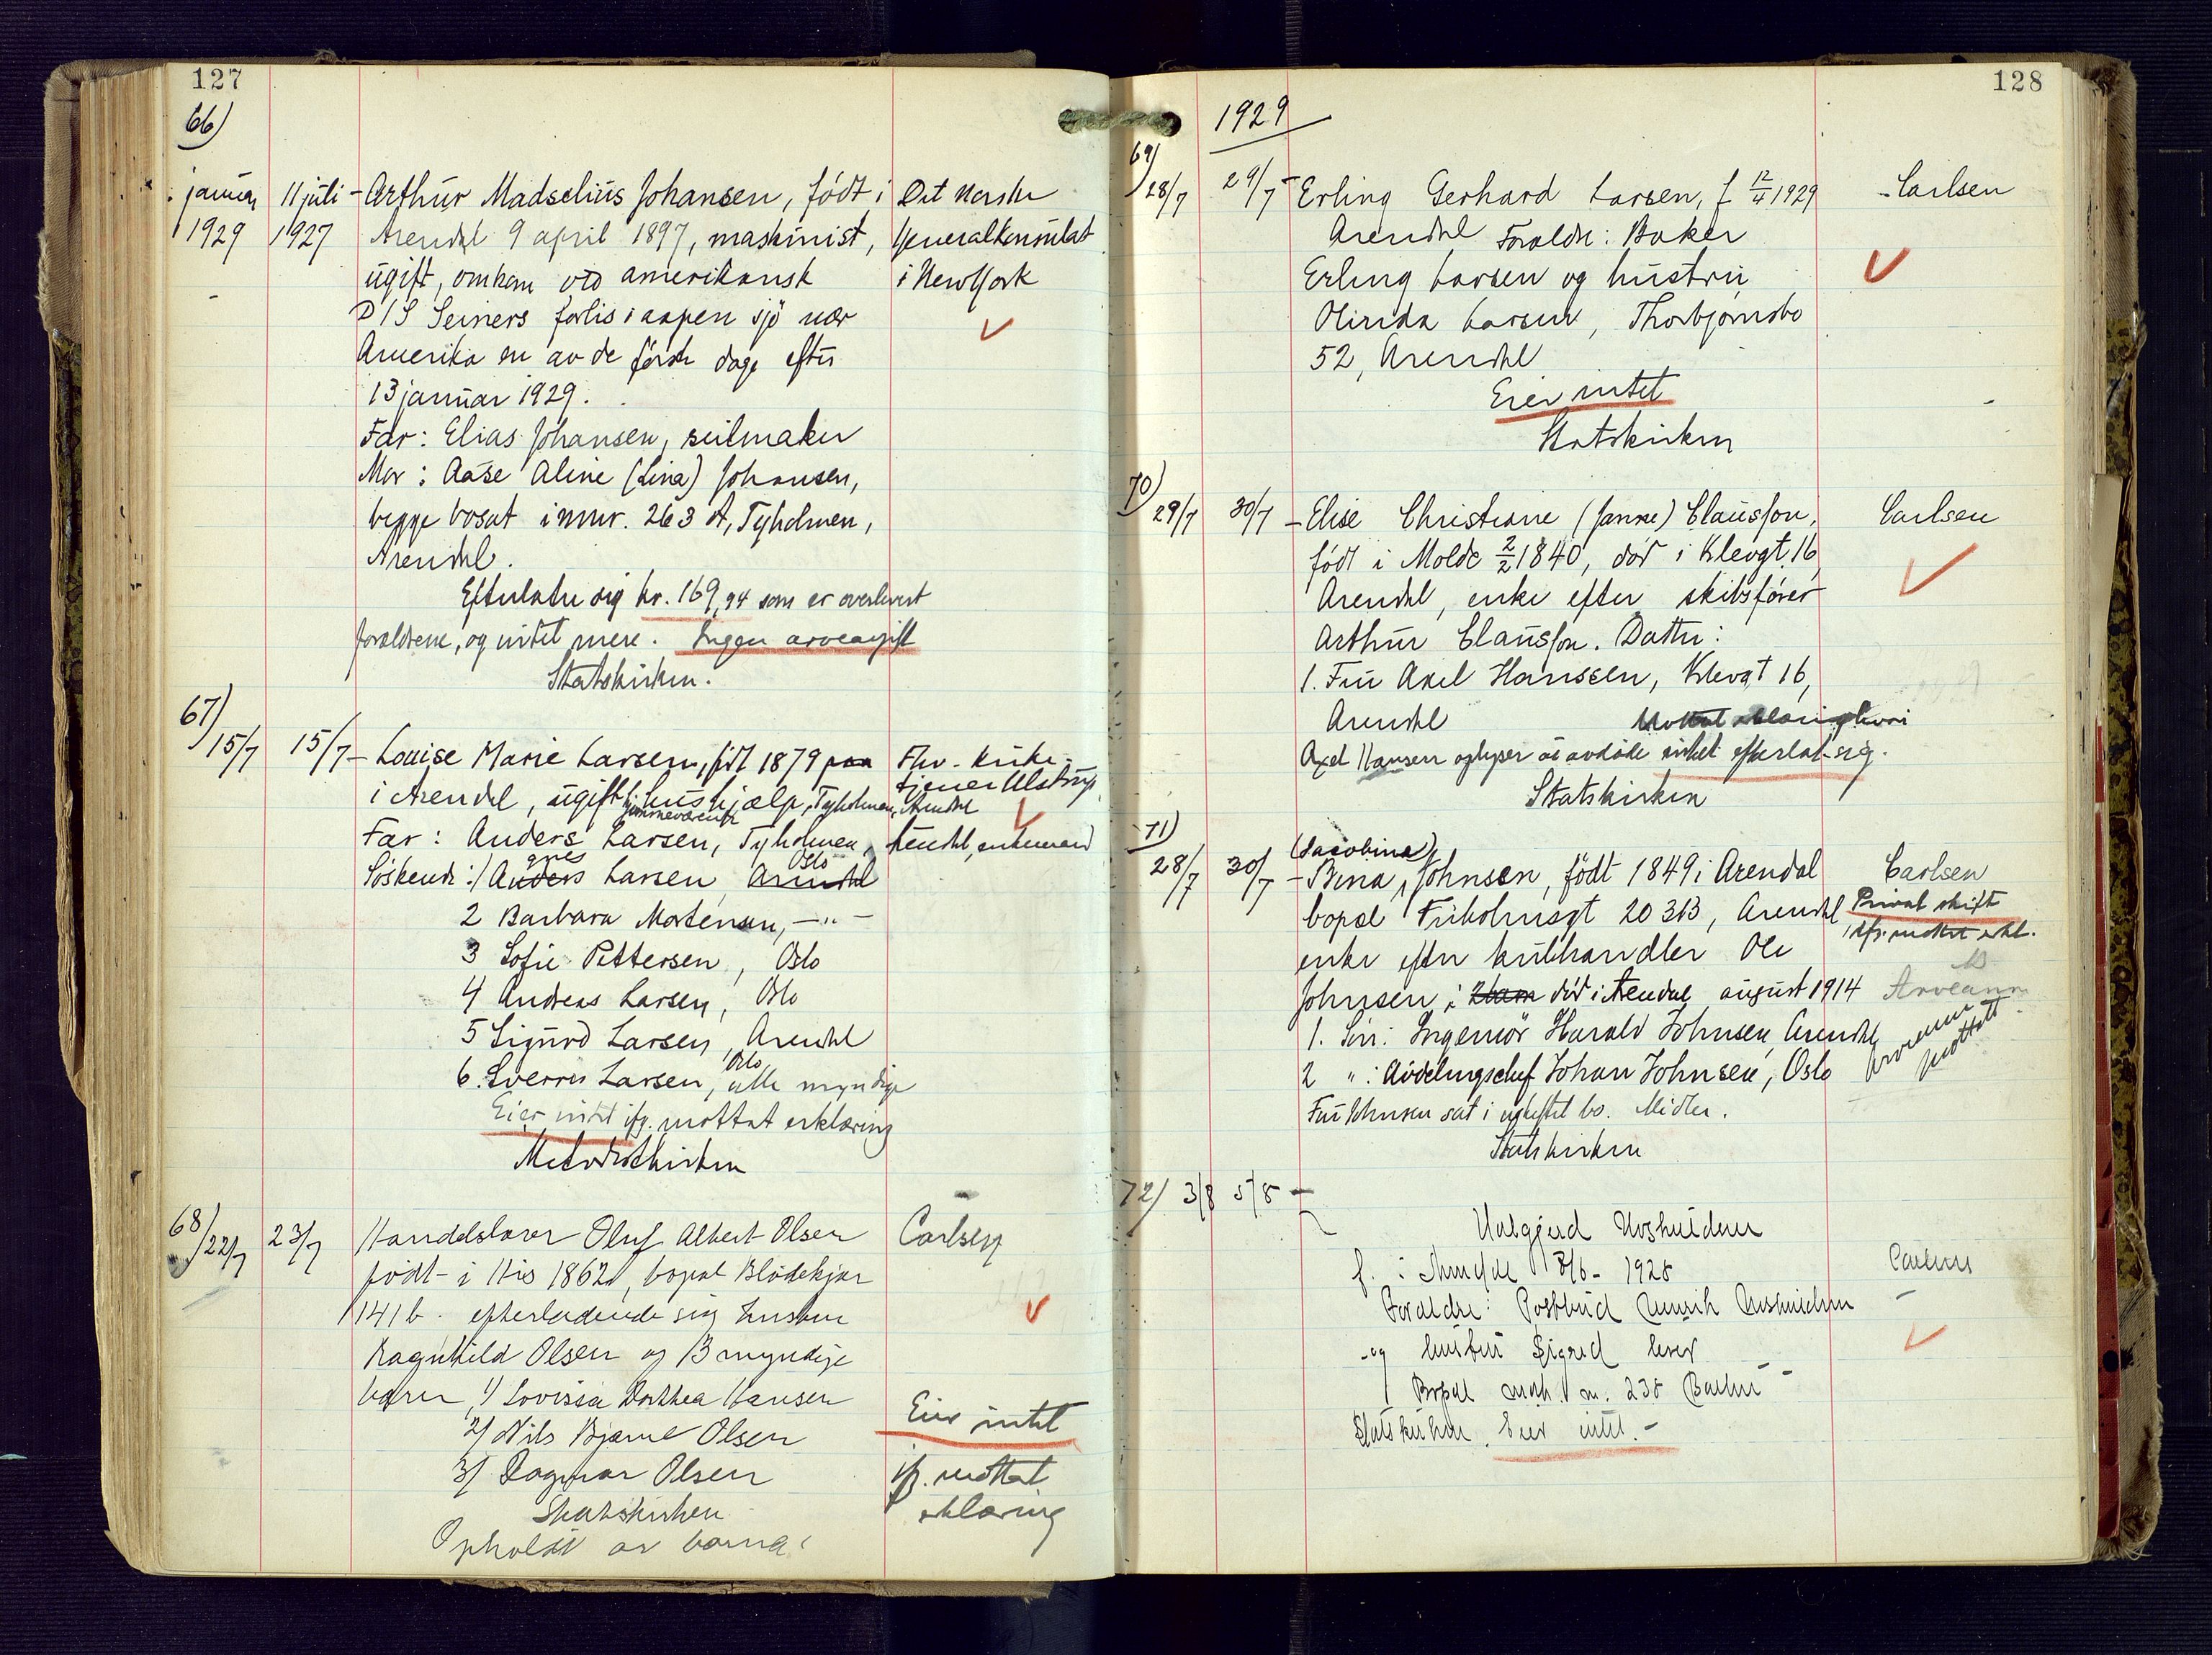 127
66)
januar 11 juli - Arthur Madselius Johansen, født i Det Norske
1929 1927 Arendal 9 april 1897, maskinist, Generalkonsulat
ugift, omkom ved amerikansk i New York
D/S Seiners forlis i aapen sjø nær
Amerika en av de første dage efter
13 januar 1929.
Far: Elias Johansen, seilmaker
Mor: Aase Aline (Lina) Johansen,
begge bosat i mnr. 263 A, Tyholmen,
Arendal.
Efterlater sig kr. 169,94 som er overlevert
forældrene, og intet mere. Ingen arveavgift
Statskirken.
67)
15/7 15/7 - Louise Marie Larsen, født 1879 paa Fhv. kirke-
tjener Ulstrup,
i Arendal, ugift hushjælp, Tyholmen, Arendal
hjemmeværende
Far: Anders Larsen, Tyholmen, Arendal, enkemand
Søskende: 1 Anders Larsen, Arendal Oslo
2 Barbara Mortensen, -"-
3 Sofie Pettersen, Oslo
4 Andreas Larsen, Oslo
5 Sigurd Larsen, Arendal
6. Sverre Larsen, Oslo, alle myndige
Eier intet ifg. mottat erklæring
Metodistkirken
68)
22/7 23/7 Oluf Albert Olsen Carlsen
født i His 1862, bopæl Blødekjær
141 b. efterladende sig hustru
Ragnhild Olsen og 3 myndige
barn, 1) Lovissa Dorthea Hansen
2) Nils Bjarne Olsen Eier intet
3) Dagmar Olsen ifg. mottat
Statskirken erklæring
Opholdt av barna.
128
1929
69)
28/7 29/7 - Erling Gerhard Larsen, f 12/4 1929 - Carlsen
Arendal Forældre: Baker
Erling Larsen og hustru
Olinda Larsen, Thorbjørnsbo
52, Arendal
Eier intet
Statskirken
70)
29/7 30/7 - Elise Christiane (Janne) Clausson, Carlsen
født i Molde 2/2 1840, død i Klevgt. 16,
Arendal, enke efter skibsfører
Arthur Clausson. Datter:
1. Fru Axel Hanssen, Klevgt 16,
Arendal Mottat erklæring
Axel Hansen oplyser at avdøde intet efterlot sig.
Statskirken
71)
28/7 30/7 - Bina (Jacobina) Johnsen, født 1849 i Arendal Carlsen
bopæl Friholmsgt 20 313, Arendal Privat skift
enke efter kulhandler Ole ifg. mottat erkl.
Johnsen, død i Arendal august 1914
1. Søn: Ingeniør Harald Johnsen, Arendal
2 " : Avdelingschef Johan Johnsen, Oslo
Arveanm mottatt
Fru Johnsen sat i uskiftet bo. Midler.
Statskirken
72) 3/8 5/8 -
f. i Arendal 1928 Carlsen
Forældre: Postbud
og hustru Sigrid lever
Bopæl matr. nr. 238
Statskirken. Eier intet.-